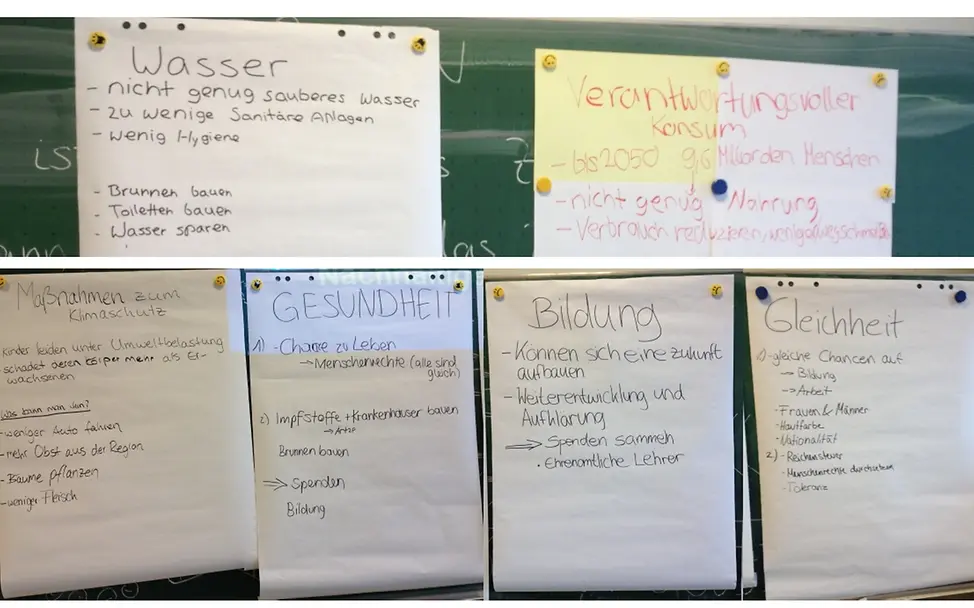 Wasser
- nicht genug sauberes Wasser
- zu wenige Sanitäre Anlagen
- wenig Hygiene
- Brunnen bauen
- Toiletten bauen
- Wasser sparen
Verantwortungsvoller
Konsum
- bis 2050 9,6 Milliarden Menschen
- nicht genug Nahrung
- Verbrauch reduzieren, weniger wegschmeißen
ist
Maßnahmen zum
Klimaschutz
Kinder leiden unter Umweltbelastung
- schadet deren Körper mehr als Er-
wachsenen
Was kann man tun?
- weniger Auto fahren
- mehr Obst aus der Region
- Bäume pflanzen
- weniger Fleisch
GESUNDHEIT
1) - Chance zu Leben
→ Menschenrechte (alle sind
gleich)
2) Impfstoffe + Krankenhäuser bauen
→ Ärzte
Brunnen bauen
⇒ Spenden
Bildung
Bildung
- Können sich eine zukunft
aufbauen
- Weiterentwicklung und
Aufklärung
⇒ Spenden sammeln
• Ehrenamtliche Lehrer
Gleichheit
1) - gleiche Chancen auf
→ Bildung
→ Arbeit
- Frauen & Männer
- Hautfarbe
- Nationalität
2.) - Reichensteuer
- Menschenrechte durchsetzen
- Toleranz